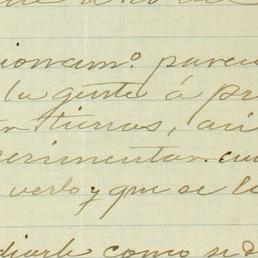 ionam.º parec
la gente á pr
tierras, así
perimentar cu
verlo y que se l
diarle como se d